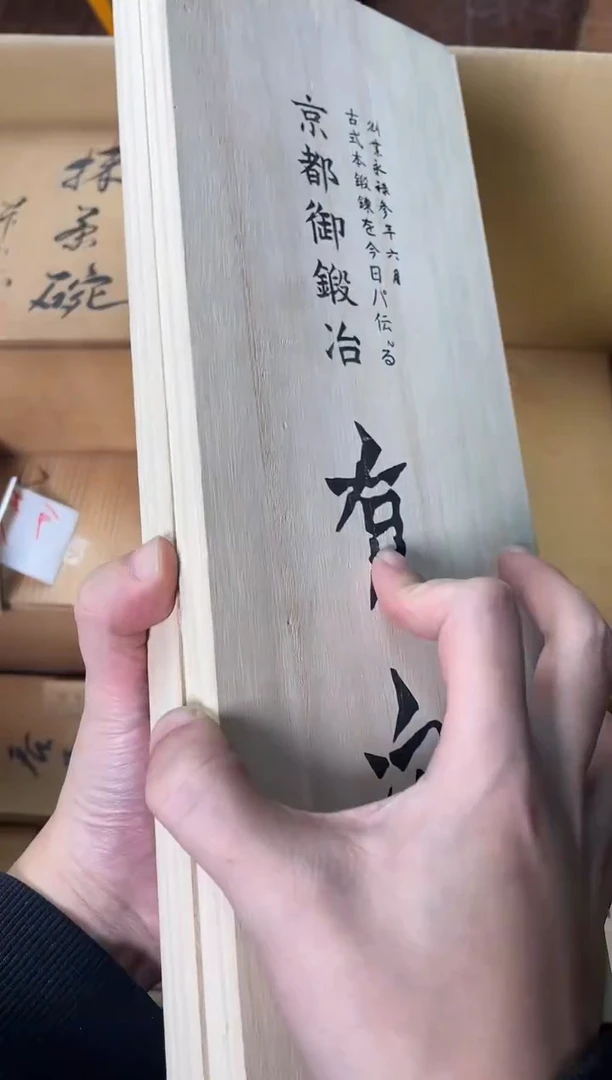 創業永禄参年六月
古式本鍛錬を今日に伝える
京都御鍛冶
有次
抹茶碗